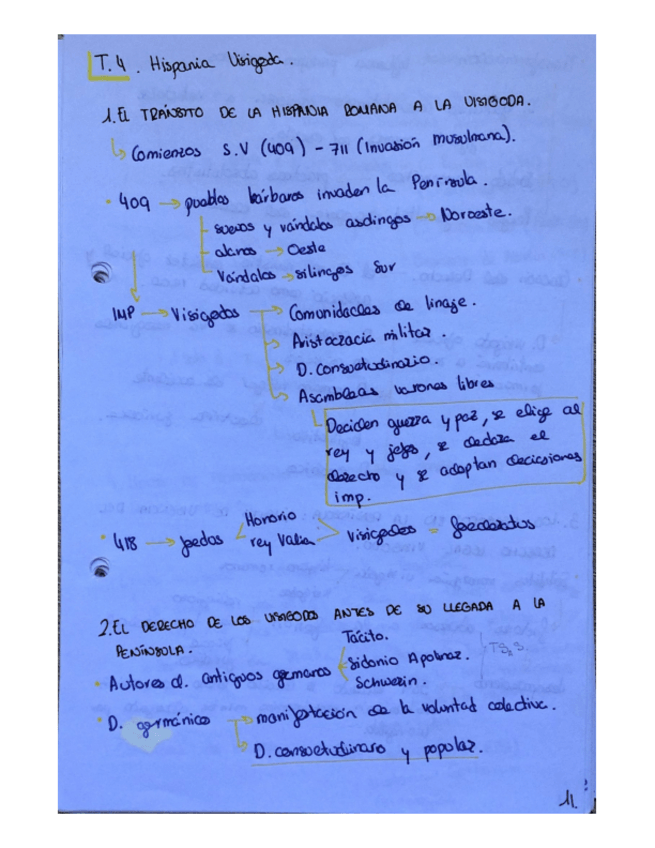 T.4. Hispania Visigoda.
1. EL TRÁNSITO DE LA HISPANIA ROMANA A LA VISIGODA.
↳ Comienzos S.V (409) - 711 (Invasión musulmana).
· 409 → pueblos bárbaros invaden la Península.
suevos y vándalos asdingos → Noroeste.
alanos → Oeste
Vándalos → silingos Sur
IMP → Visigodos → Comunidades de linaje.
→ Aristocracia militar.
→ D. consuetudinario.
→ Asambleas varones libres
Deciden guerra y paz, se elige al
rey y jefes, se declara el
derecho y se adoptan decisiones
imp.
· 418 → foedus < Honorio
rey Valia > visigodos = foederatus
2. EL DERECHO DE LOS VISIGODOS ANTES DE SU LLEGADA A LA
PENÍNSULA.
· Autores d. antiguos germanos < Tácito.
Sidonio Apolinar.
Schwerin.
· D. germánico → manifestación de la voluntad colectiva.
↳ D. consuetudinaro y popular.
11